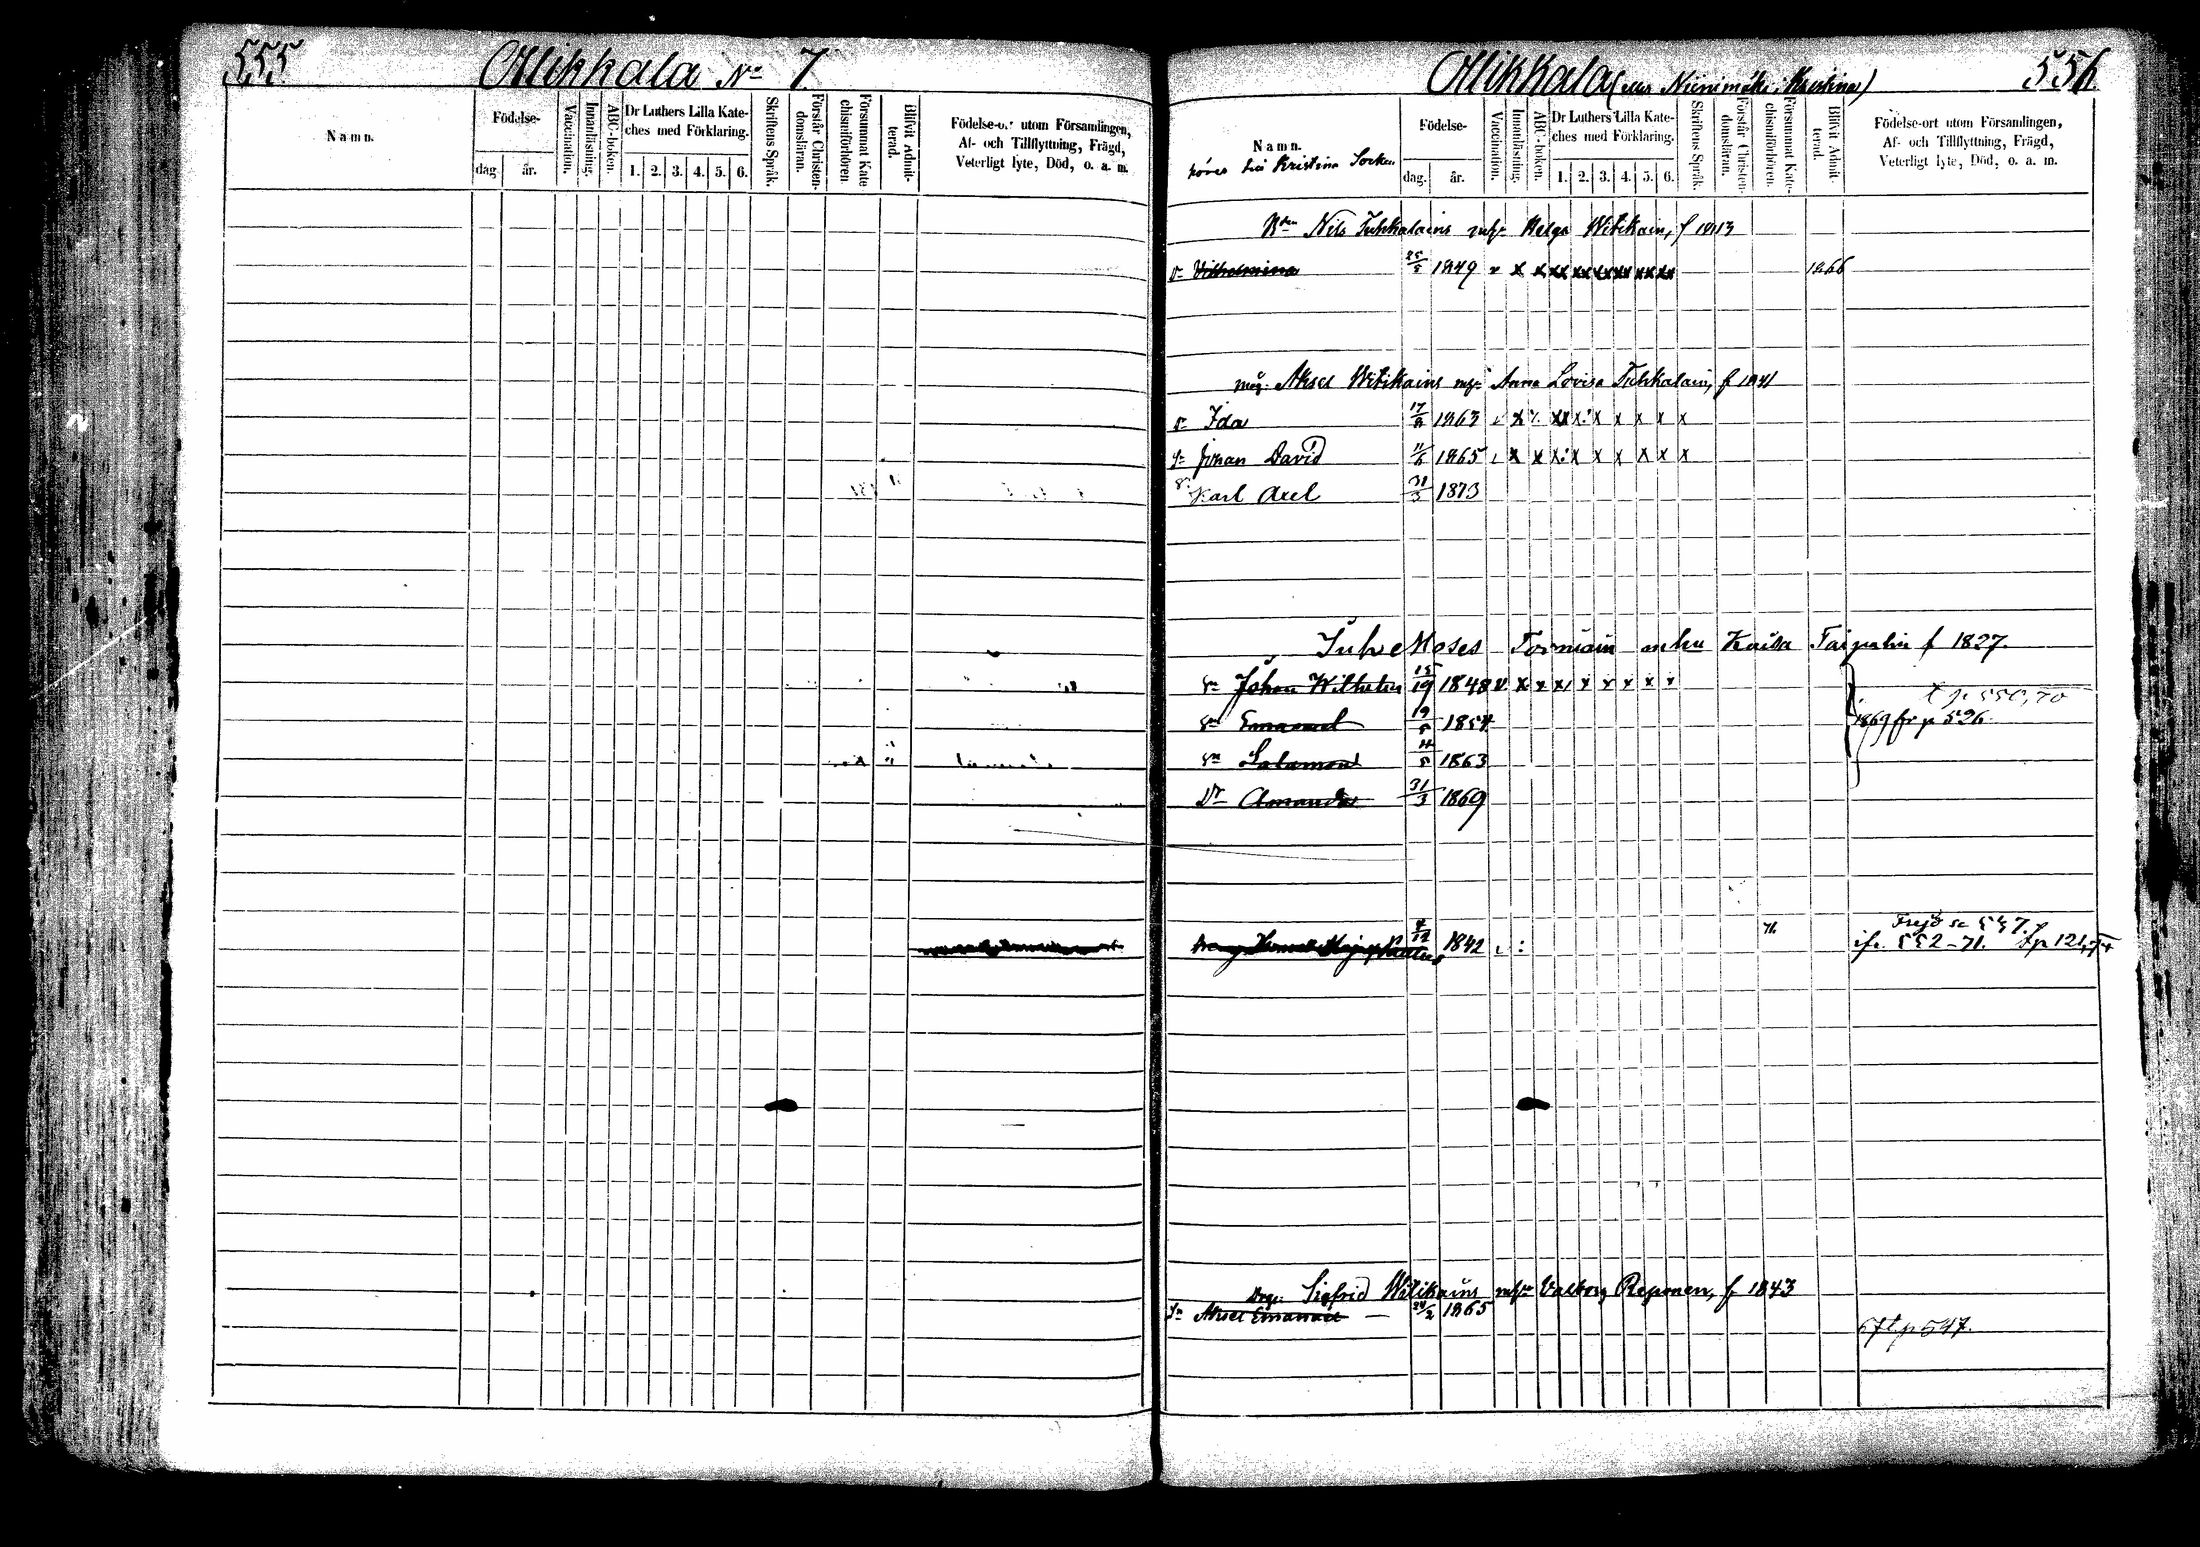 555
Mikkala No 7
Namn.
Födelse-
dag.
år.
Vaccination.
Innanläsning.
ABC-boken.
Dr Luthers Lilla Kate-
ches med Förklaring.
1. 2. 3. 4. 5. 6.
Skriftens Språk.
Förstår Christen-
domsläran.
Försummat Kate-
chismiförhören.
Blifvit Admit-
terad.
Födelse-ort utom Församlingen,
Af- och Tillflyttning, Frägd,
Veterligt lyte, Död, o. a. m.
Mikkala (eller Niinimäki i Kristina)
556
Namn.
höres hos Kristina Socken
Födelse-
dag.
år.
Vaccination.
Innanläsning.
ABC-boken.
Dr Luthers Lilla Kate-
ches med Förklaring.
1. 2. 3. 4. 5. 6.
Skriftens Språk.
Förstår Christen-
domsläran.
Försummat Kate-
chismiförhören.
Blifvit Admit-
terad.
Födelse-ort utom Församlingen,
Af- och Tillflyttning, Frägd,
Veterligt lyte, Död, o. a. m.
Nils Tuhkalains Helga Witikain, f 1813
Dr Vilhelmina 25/5 1849 v x x xx xx xx xx xx xx 1866
måg. Aksel Witikains Anna Lovisa Tuhkalain, f 1841
Dr Ida 17/8 1863 x x x x x x x
Sn Johan David 11/6 1865 x x x x x x x x x
Sn Karl Axel 31/3 1873
Inh Moses Torniain enka Kaisa Taipalin f 1827.
Sn Johan Wilhelm 15/19 1848 v x x x x x x x x
t p 550, 70
Sn Emanuel 19/8 1854
1869 fr p 596
Sn Salamon 4/8 1863
Dr Amanda 31/3 1869
1842
71.
Frejd se 557.
ifr. 552-71. t p 121,
Drg. Sigfrid Witikains Valborg Reponen, f 1843
Sn Aksel Emanuel — 24/2 1865
67 t p 547.